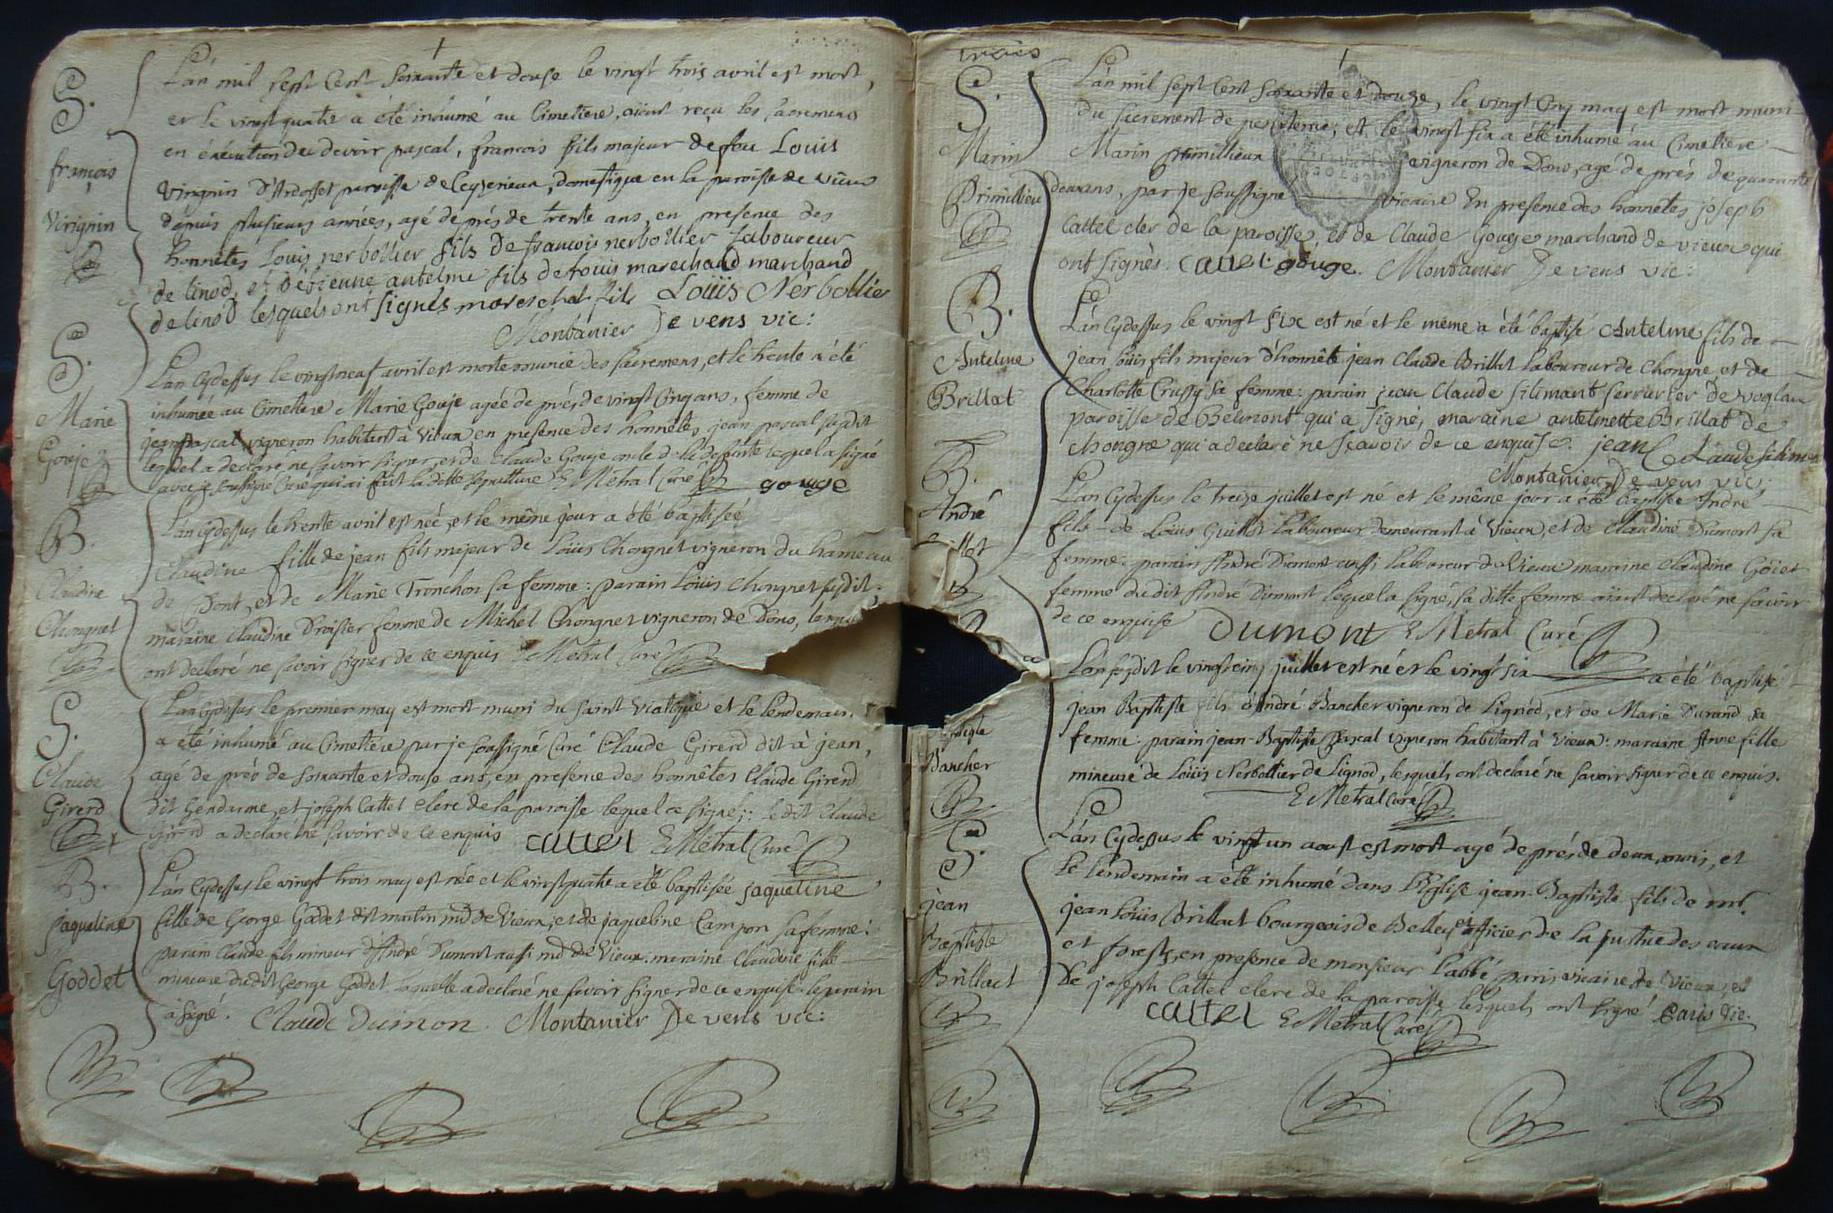 S.
françois
Virignin
L'an mil sept cent soixante et douse le vingt trois avril est mort,
et le vingt quatre a été inhumé au Cimetiere, aiant reçu les sacremens
en éxécution du devoir pascal, francois fils majeur de feu Louis
Virignin d'Ardosset paroisse de Ceyzerieux, domestique en la paroisse de vieux
depuis plusieurs années, agé de prés de trente ans, en presence des
honnêtes Louis nerbollier fils De francois nerbollier Laboureur
de linod, et d'étienne antelme fils de fouis marechand marchand
de linod lesquels ont signés mareschal fils Loüis Nerbollier
Montanier De vens vic:
S.
Marie
Gouje
L'an cydessus le vingt neuf avril est morte munie des sacremens, et le trente a été
inhumée au Cimetiere Marie Gouje agée de prés de vingt cinq ans, femme de
jean pascal vigneron habitant à Vieux en presence des honnêtes jean pascal susdit
lequel a declaré ne savoir signer, et de Claude Gouje oncle de la defunte lequel a signé
avec je soussigné Curé qui ai fait la ditte sepulture E Metral Curé gouge
B.
Claudine
Chongnet
L'an cydessus le trente avril est née, et le même jour a été baptisée
Claudine fille de jean fils majeur de Loüis Chongnet vigneron du hameau
de Dont, et de Marie Tronchon sa femme: parain Loüis Chongnet susdit;
maraine Claudine Droister femme de Michel Chongnet vigneron de Dons, lesquels
ont declaré ne savoir signer de ce enquis E Metral Curé
S.
Claude
Girerd
L'an cydessus le premier may est mort muni du saint Viatique et le lendemain
a été inhumé au Cimetiere par je soussigné Curé Claude Girerd dit à jean,
agé de prés de soixante et douse ans, en presence des honnêtes Claude Girerd
dit Gendarme, et joseph Cattet clerc de la paroisse lequel a signé; le dit Claude
Girerd a declaré ne savoir de ce enquis cattet E Metral Curé
B.
jaqueline
Goddet
L'an cydessus le vingt trois may est née et le vingt quatre a été baptisée jaqueline
fille de George Godet dit martin md de Vieux, et de jaqueline Campon sa femme:
parain Claude fils mineur d'André Dumont aussi md de Vieux: maraine Claudine fille
mineure dudit George Goddet laquelle a declaré ne savoir signer de ce enquise le parain
a signé. Claude Dumon. Montanier De vens vic:
S.
Marin
Primillieu
L'an mil sept cent soixante et douze, le vingt cinq may est mort muni
du sacrement de penitence, et le vingt six a été inhumé au Cimetiere
Marin primillieux vigneron de Dons, agé de prés de quarante
deux ans, par je soussigné vicaire En presence des honnêtes joseph
Cattet clerc de la paroisse, et de Claude Gouge marchand de vieux qui
ont signés. cattet gouge. Montanier De vens vic:
B.
Antelme
Brillat
L'an cydessus le vingt six est né et le même a été baptisé Antelme fils de
jean loüis fils majeur d'honnête jean Claude Brillat Laboureur de Chongne et de
Charlotte Crussy sa femme: parain jean Claude silimant serrurier de voglan
paroisse de Belmont qui a signé, maraine antelmette Brillat de
chongne qui a declaré ne sçavoir de ce enquise. jean Claude silimen
Montanier De vens vic:
B.
André
L'an cydessus le treise juillet est né et le même jour a été baptisé André
fils de Loüis Guillot Laboureur demeurant à Vieux, et de Claudine Dumont sa
femme: parain André Dumont aussi laboureur de Vieux maraine Claudine Goiet
femme du dit André Dumont lequel a signé, sa ditte femme aiant declaré ne savoir
de ce enquise Dumont E Metral Curé
B
Bancher
L'an susdit le vingt cinq juillet est né et le vingt six a été baptisé
jean Baptiste fils d'André Bancher vigneron de Lignod, et de Marie Durand sa
femme: parain jean-Baptiste pascal vigneron habitant à Vieux: maraine Anne fille
mineure de Loüis Nerbollier de Lignod, lesquels ont declaré ne savoir signer de ce enquis.
E Metral Curé
S.
jean
Baptiste
Brillact
L'an cydessus le vingt un aoust est mort agé de prés de deux mois, et
le lendemain a été inhumé dans l'Eglise jean-Baptiste fils de mr.
jean Loüis Brillact bourgeois de Belley officier de la justice des eaux
et forets, en presence de monsieur l'abbé paris vicaire de Vieux, et
De joseph Cattet clerc de la paroisse lesquels ont signé paris vic.
cattet E Metral Curé